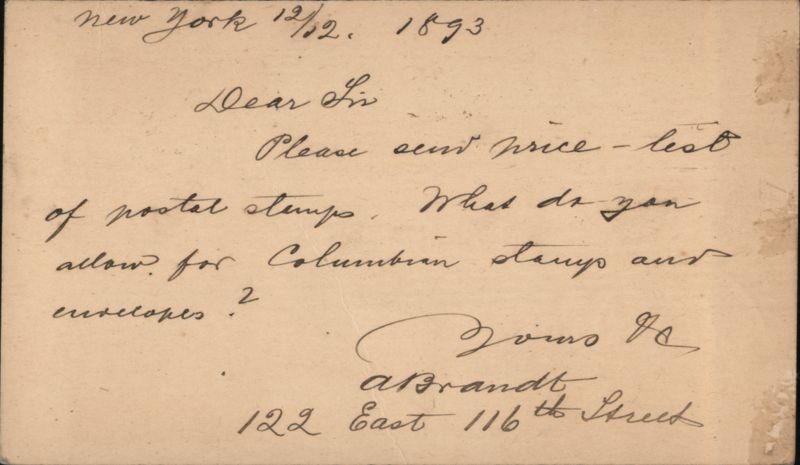 New York 12/12. 1893
Dear Sir
Please send price-list
of postal stamps. What do you
allow for Columbian stamps and
envelopes?
Yours &c
A Brandt
122 East 116th Street